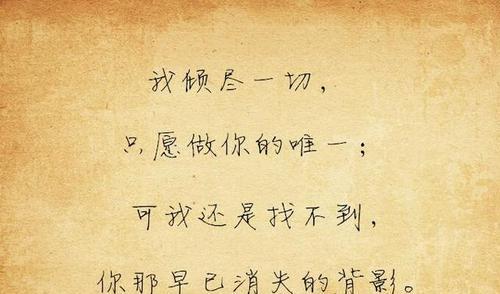 我倾尽一切，
只愿做你的唯一；
可我还是找不到，
你那早已消失的背影。